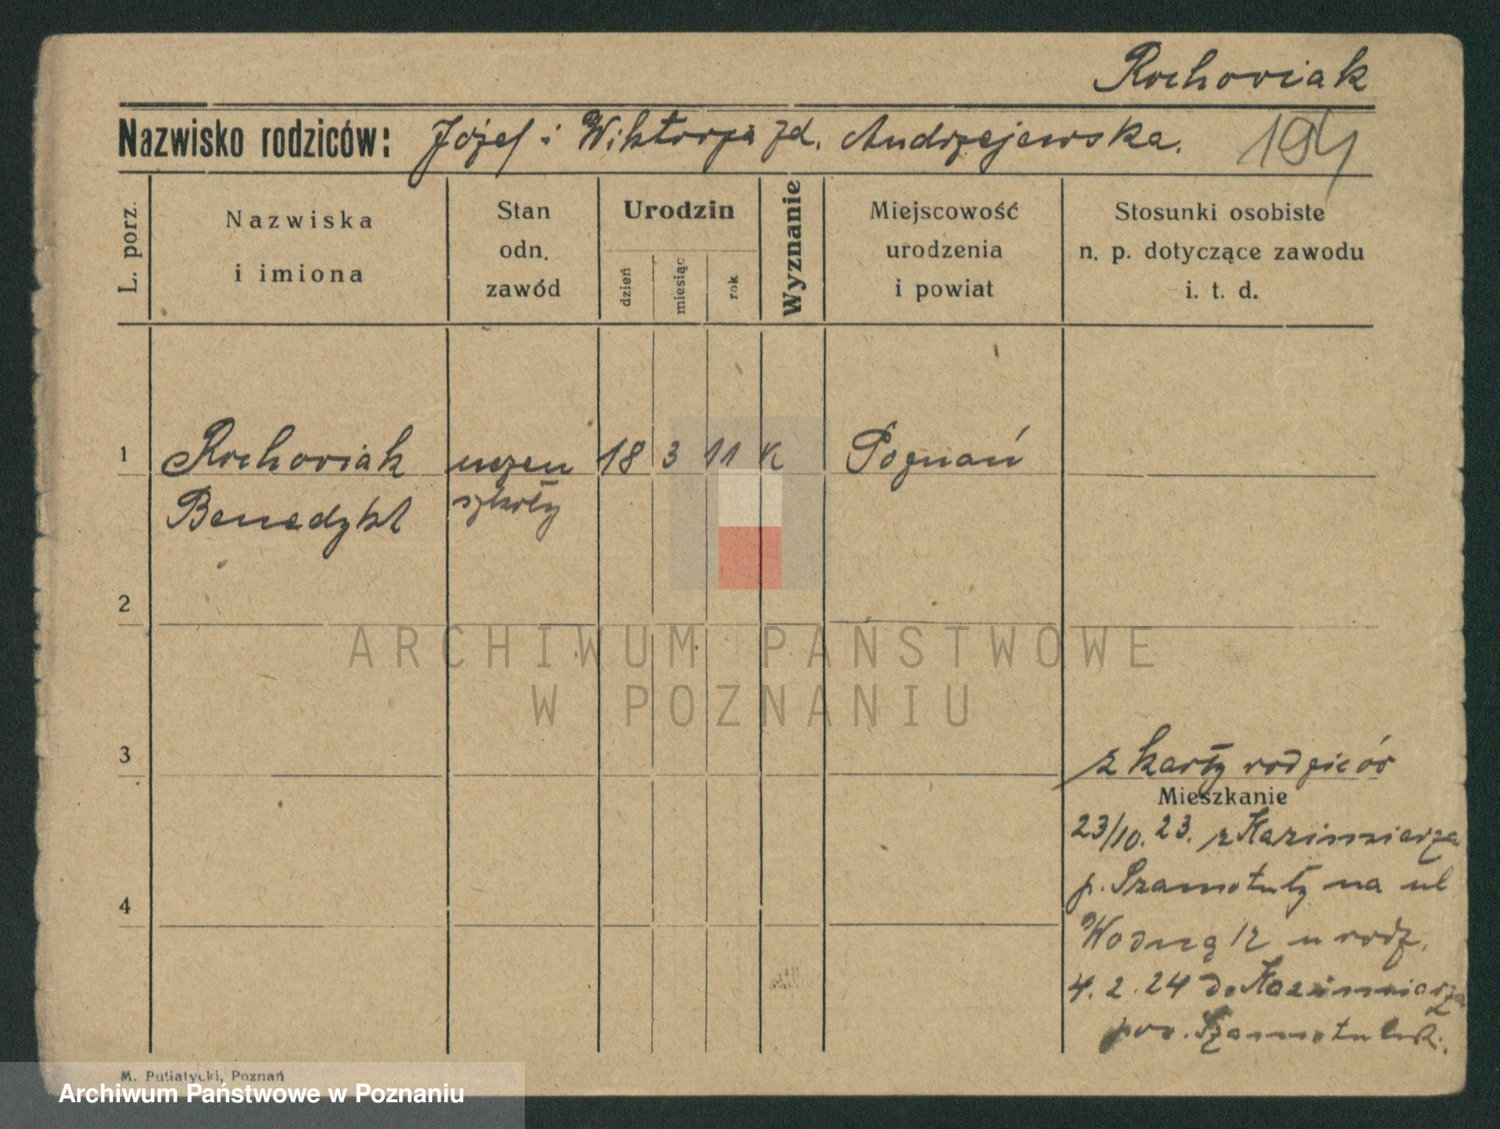 Rochowiak
Nazwisko rodziców: Józef i Wiktorya zd. Andrzejewska.
L. porz.
Nazwiska
i imiona
Stan
odn.
zawód
Urodzin
dzień
miesiąc
rok
Wyznanie
Miejscowość
urodzenia
i powiat
Stosunki osobiste
n. p. dotyczące zawodu
i. t. d.
1 Rochowiak uczeń 18 3 11 K Poznań
Benedykt szkoły
2
ARCHIWUM PAŃSTWOWE
W POZNANIU
3
z karty rodziców
Mieszkanie
23/10. 23. z Kazimierza
p. Szamotuły na ul
4
Wodną 12 u rodz.
4. 2. 24 do Kazimierza
pow. Szamotulsk.
M. Putiatycki, Poznań
Archiwum Państwowe w Poznaniu